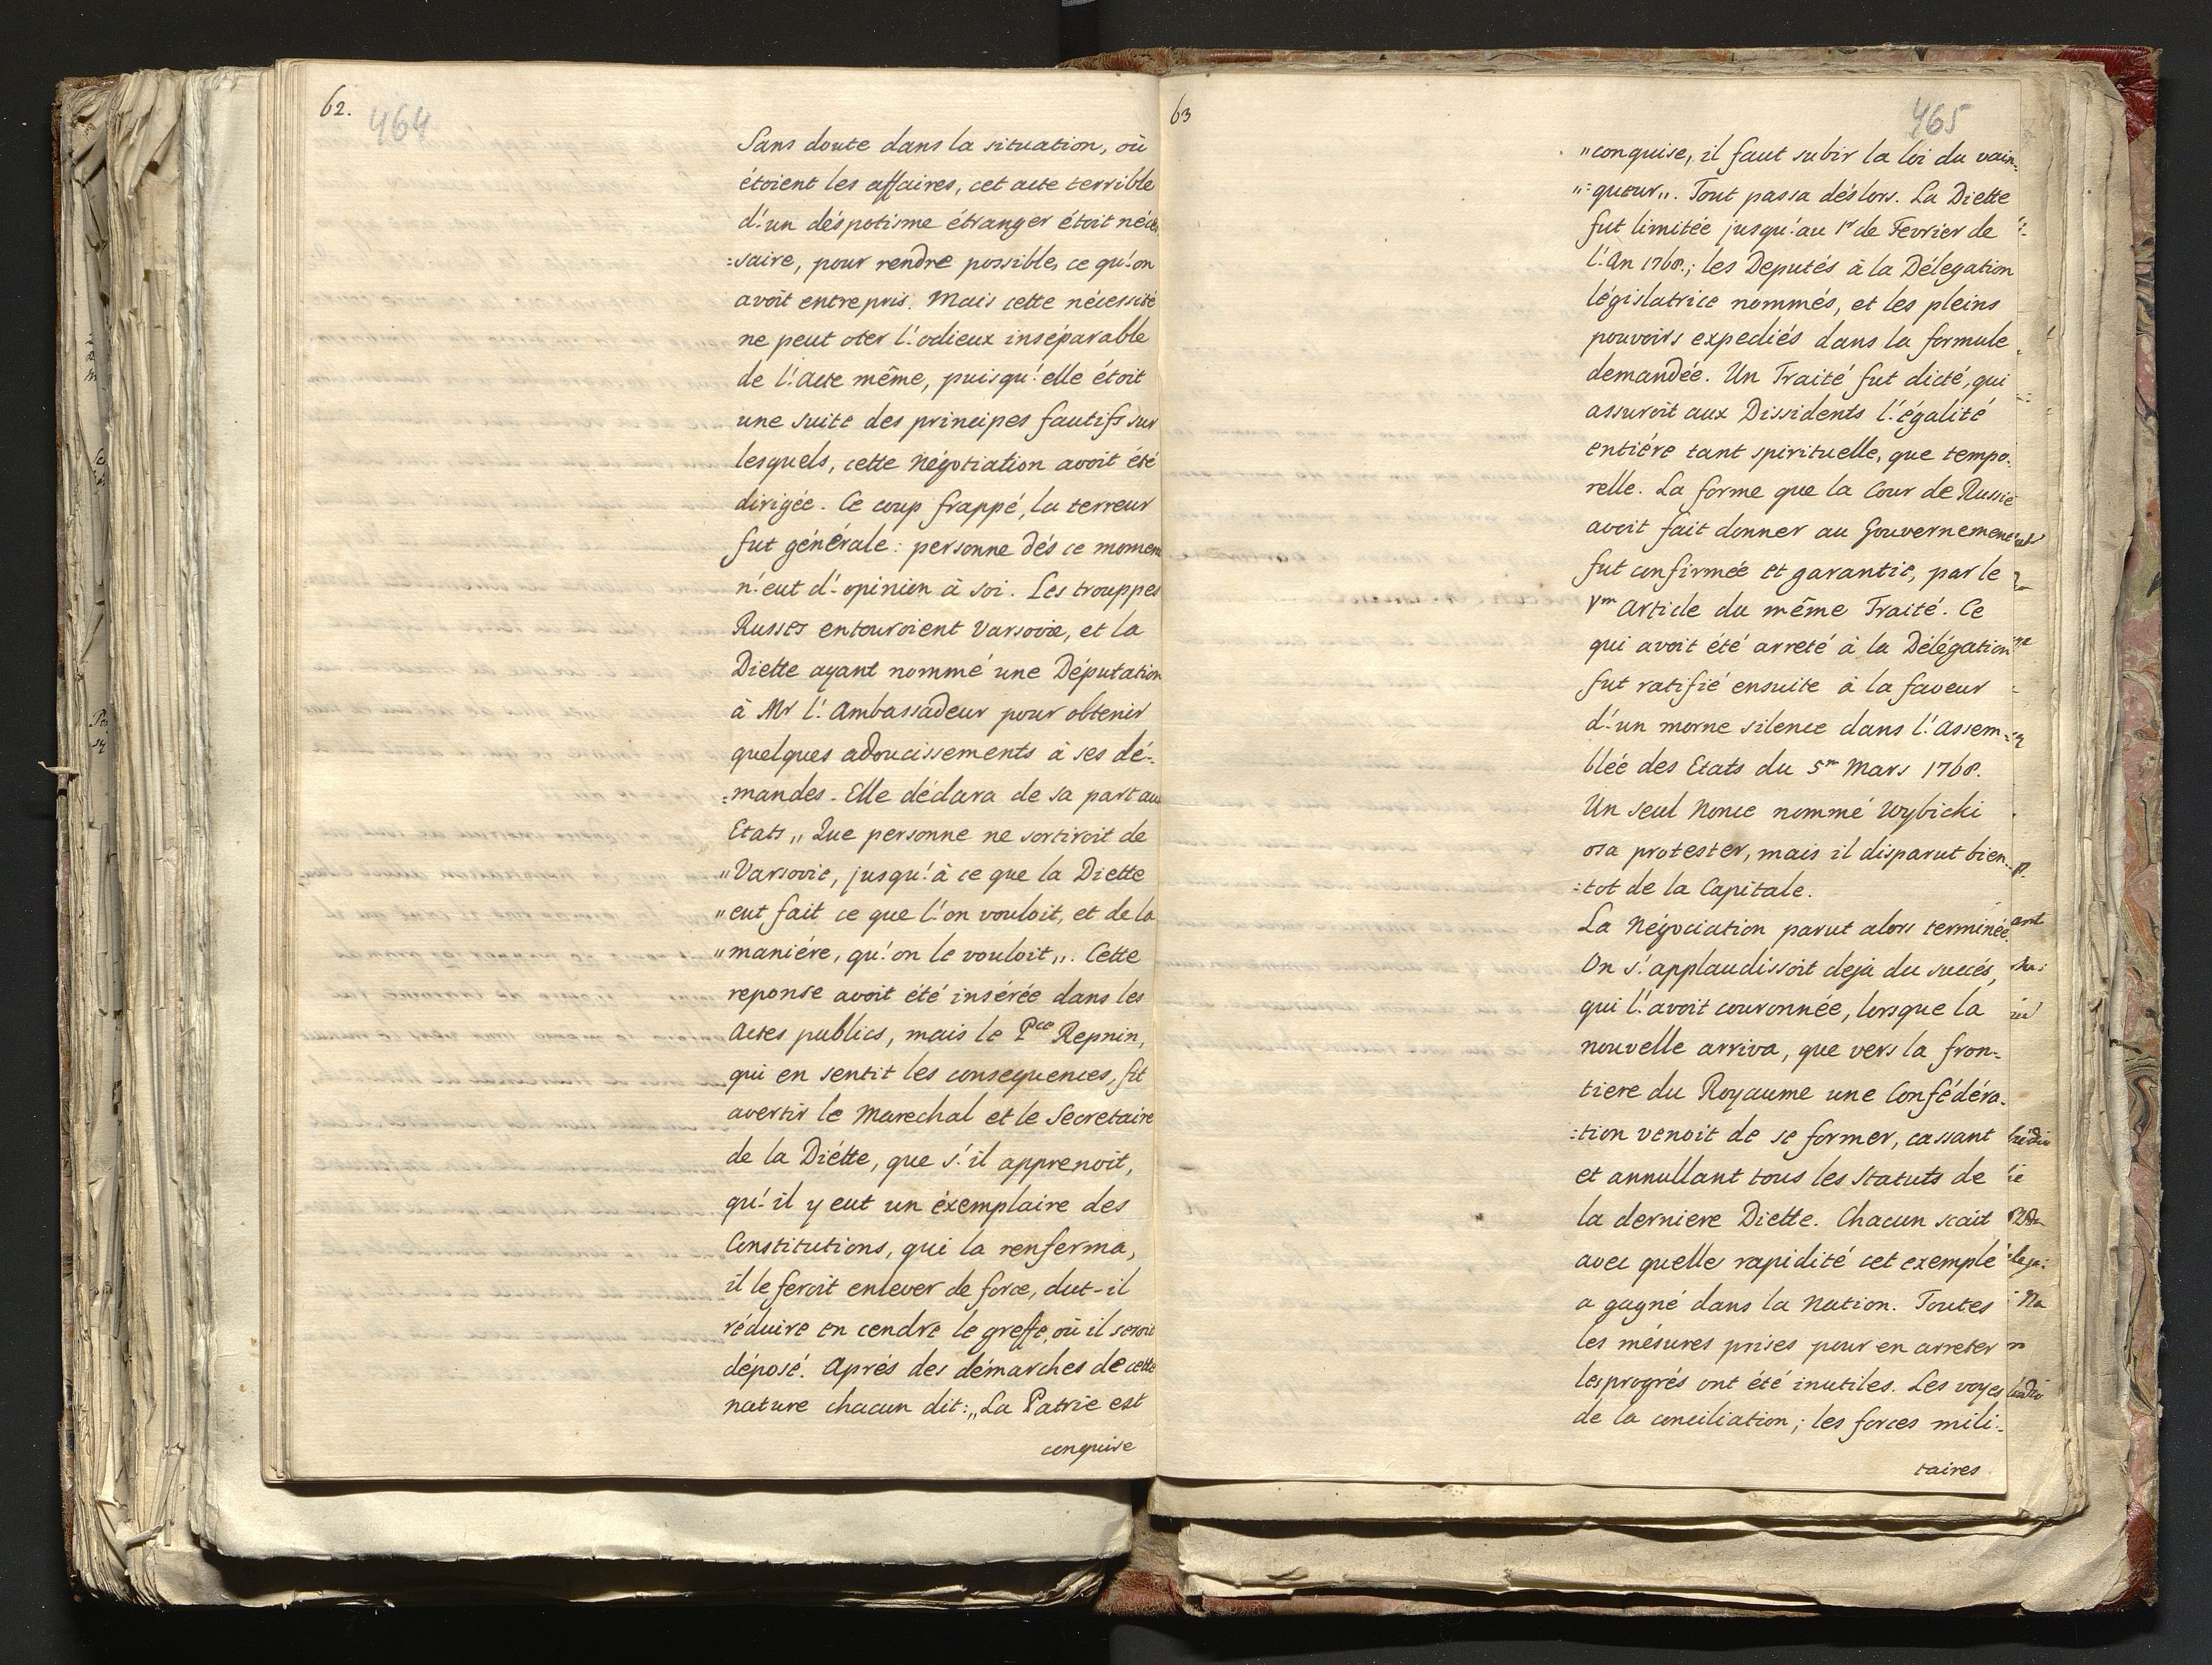 62.
464
Sans doute dans la situation, où
étoient les affaires, cet acte terrible
d'un déspotisme étranger étoit néces
:saire, pour rendre possible, ce qu'on
avoit entrepris. Mais cette nécessité
ne peut oter l'odieux inséparable
de l'Acte même, puisqu'elle étoit
une suite des principes fautifs sur
lesquels, cette Négotiation avoit été
dirigée. Ce coup frappé, la terreur
fut générale: personne dés ce moment
n'eut d'opinion à soi. Les trouppes
Russes entouroient Varsovie, et la
Diette ayant nommé une Députation
à Mr l'Ambassadeur pour obtenir
quelques adoucissements à ses dé-
:mandes. Elle déclara de sa part aux
Etats „ Que personne ne sortiroit de
„Varsovie, jusqu'à ce que la Diette
„eut fait ce que l'on vouloit, et de la
„maniére, qu'on le vouloit„. Cette
reponse avoit été insérée dans les
Actes publics, mais le Pce Repnin,
qui en sentit les consequences, fit
avertir le Marechal et le Secretaire
de la Diétte, que s'il apprenoit,
qu'il y eut un éxemplaire des
Constitutions, qui la renferma,
il le feroit enlever de force, dut-il
réduire en cendre le greffe, où il seroit
déposé. Aprés des démarches de cette
nature chacun dit: „La Patrie est
conquise
63
465
„conquise, il faut subir la loi du vain-
„:queur„. Tout passa déslors. La Diette
fut limitée jusqu'au 1r de Fevrier de
l'An 1768.; les Deputés à la Délegation
législatrice nommés, et les pleins
pouvoirs expediés dans la formule
demandée. Un Traité fut dicté, qui
assuroit aux Dissidents l'égalité
entiére tant spirituelle, que tempo-
relle. La forme que la Cour de Russie
avoit fait donner au Gouvernement
fut confirmée et garantie, par le
Vm Article du même Traité. Ce
qui avoit été arreté à la Délégation
fut ratifié ensuite à la faveur
d'un morne silence dans l'Assem-
blée des Etats du 5m Mars 1768.
Un seul Nonce nommé Wybicki
osa protester, mais il disparut bien-
:tot de la Capitale.
La Négociation parut alors terminée.
On s'applaudissoit deja du succés,
qui l'avoit couronnée, lorsque la
nouvelle arriva, que vers la fron-
tiere du Royaume une Confédéra-
:tion venoit de se former, cassant
et annullant tous les Statuts de
la derniere Diette. Chacun scait
avec quelle rapidité cet exemple
a gagné dans la Nation. Toutes
les mésures prises pour en arreter
les progrés ont été inutiles. Les voyes
de la conciliation; les forces mili-
taires